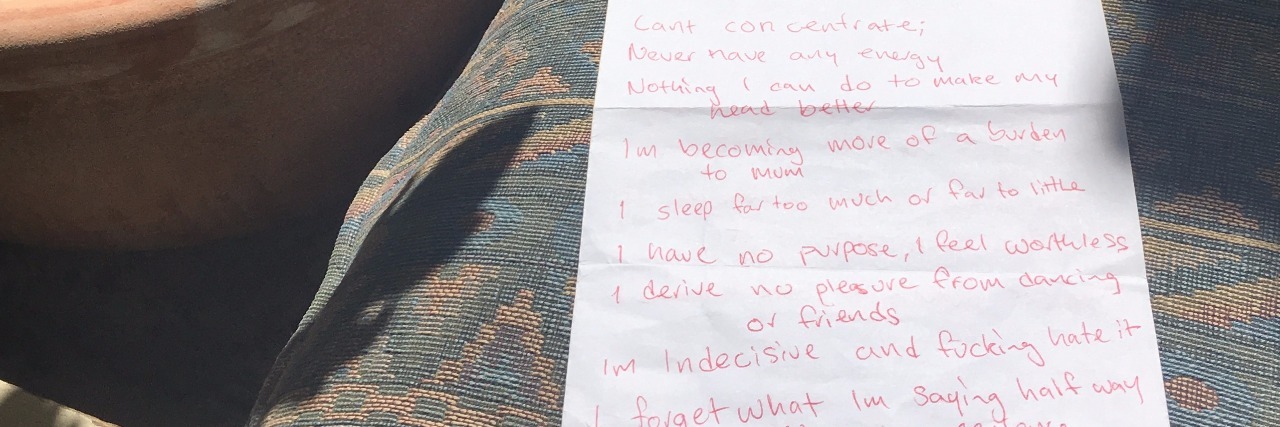 Cant concentrate;
Never have any energy
Nothing I can do to make my
head better
Im becoming more of a burden
to mum
I sleep far too much or far to little
I have no purpose, I feel worthless
I derive no pleasure from dancing
or friends
Im Indecisive and fucking hate it
I forget what Im saying half way